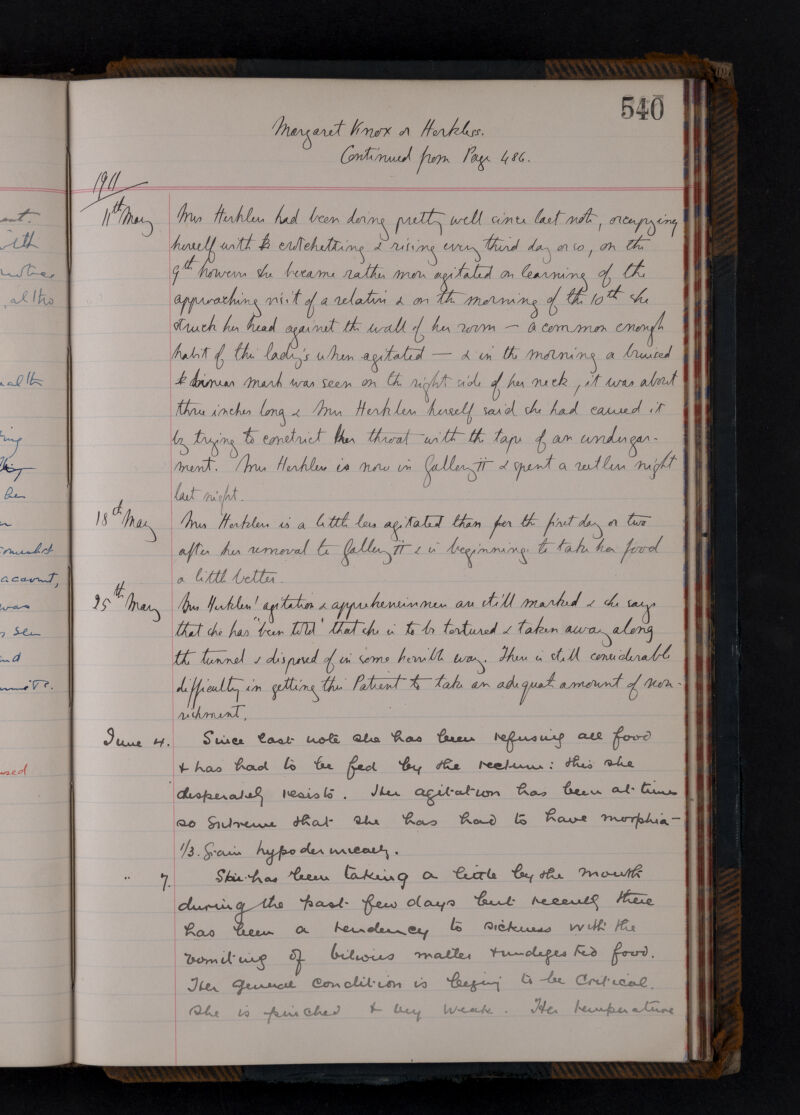 540
Margaret Knox or Herkless.
Continued from Page 486.
1911
11th May Mrs Herkless had been doing pretty well since last note, occupying
herself with crotchetting & rising every third day or so, on the
9th however she became rather more agitated on learning of the
approaching visit of a relative & on the morning of the 10th she
struck her head against the wall of her room — a common enough
habit of this lady's when agitated — & in the morning a bruised
linear mark was seen on the right side of her neck, it was about
three inches long & Mrs Herkless herself said she had caused it
by trying to constrict her throat with the tape of an undergar-
ment. Mrs Herkless is now in Gallery II & spent a restless night
last night.
18th May Mrs Herkless is a little less agitated than for the first day or two
after her removal to Gallery II & is beginning to take her food
a little better.
25th May Mrs Herkless' agitation & apprehensiveness are still marked & she says
that she has "been told" that she is to be tortured & taken away along
the tunnel & disposed of in some horrible way. There is still considerable
difficulty in getting this Patient to take an adequate amount of nou-
rishment.
June 4. Since last note she has been refusing all food
& has had to be fed by the rectum: this she
desperately resists. Her agitation has been at times
so extreme that she has had to have morphia —
1/3. Grain hypodermically.
" 7. She has been taking a little by the mouth
during the past few days but recently there
has been a tendency to sickness with the
vomiting of bilious matter & undigested food.
Her general condition is to be Critical.
She is pinched & very weak. Her temperature